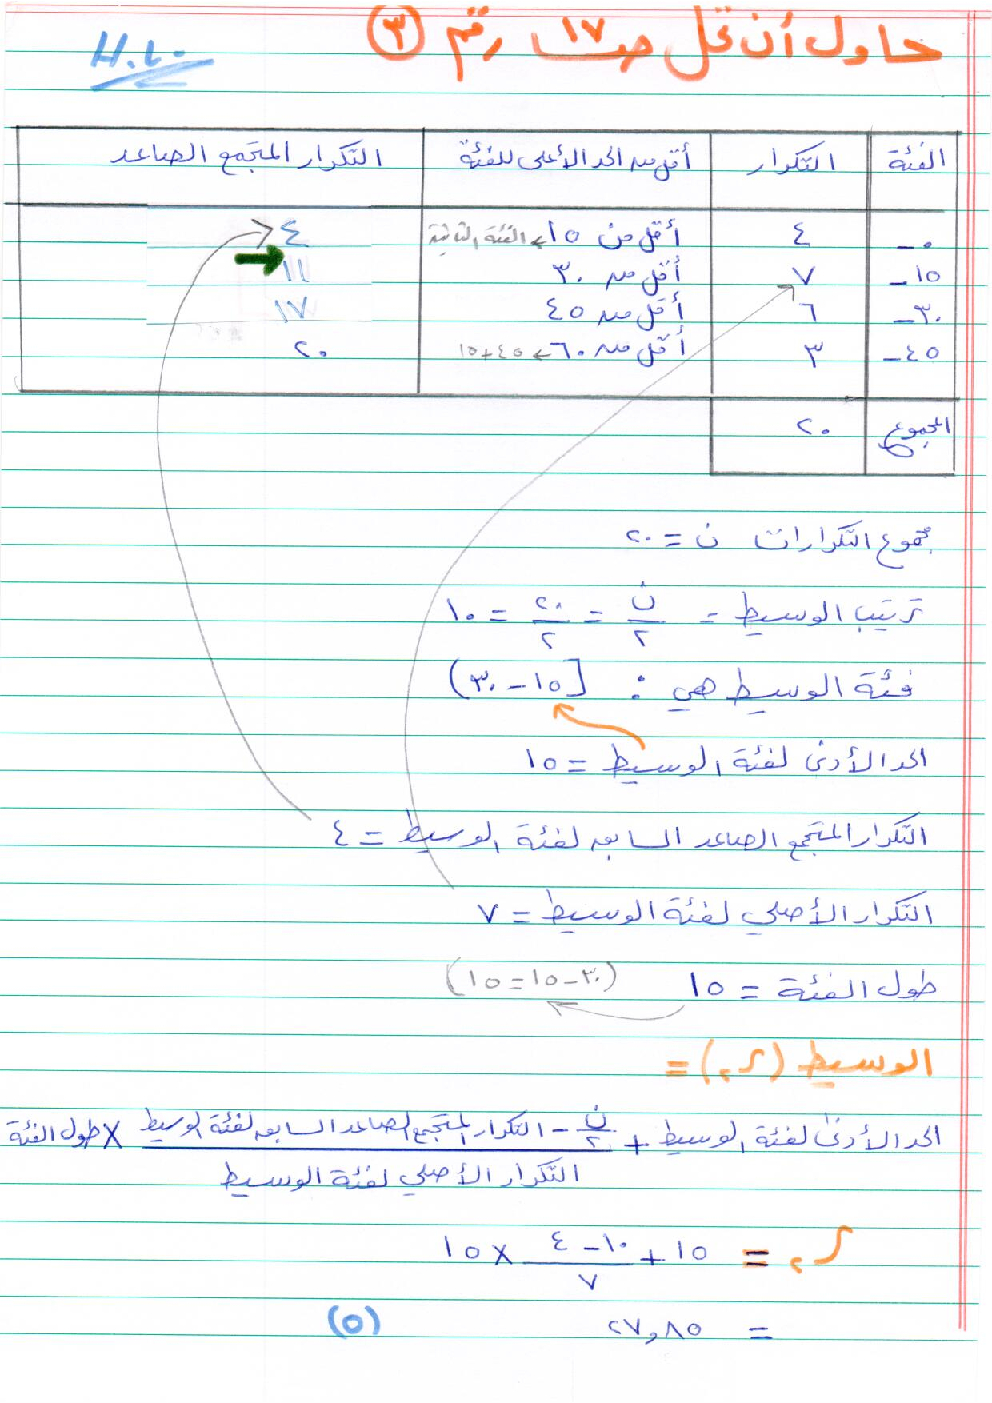 حاول أن تحل صـ ١٧ رقم (٣)
H.W.
الفئة التكرار أقل من الحد الأعلى للفئة التكرار المتجمع الصاعد
٠ــ ٤ أقل من ١٥ ← الفئة الثانية ٤
١٥ــ ٧ أقل من ٣٠ ١١
٣٠ــ ٦ أقل من ٤٥ ١٧
٤٥ــ ٣ أقل من ٦٠ ← ٤٥+١٥ ٢٠
المجموع ٢٠
مجموع التكرارات ن = ٢٠
ترتيب الوسيط = ن/٢ = ٢٠/٢ = ١٠
فئة الوسيط هي : [١٥ - ٣٠)
الحد الأدنى لفئة الوسيط = ١٥
التكرار المتجمع الصاعد السابق لفئة الوسيط = ٤
التكرار الأصلي لفئة الوسيط = ٧
طول الفئة = ١٥ (٣٠ - ١٥ = ١٥)
الوسيط (ر٢) =
الحد الأدنى لفئة الوسيط + ن/٢ - التكرار المتجمع الصاعد السابق لفئة الوسيط × طول الفئة
التكرار الأصلي لفئة الوسيط
ر٢ = ١٥ + ١٠ - ٤ × ١٥
٧
= ٢٧,٨٥
(٥)